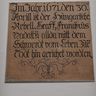 Im Jahr 1671 den 30
April ist der Hungarische
Rebell, Graff, Franciscus
Nadasti allda mit dem
Schwerdt vom Leben zum
Tod hin gericht worden